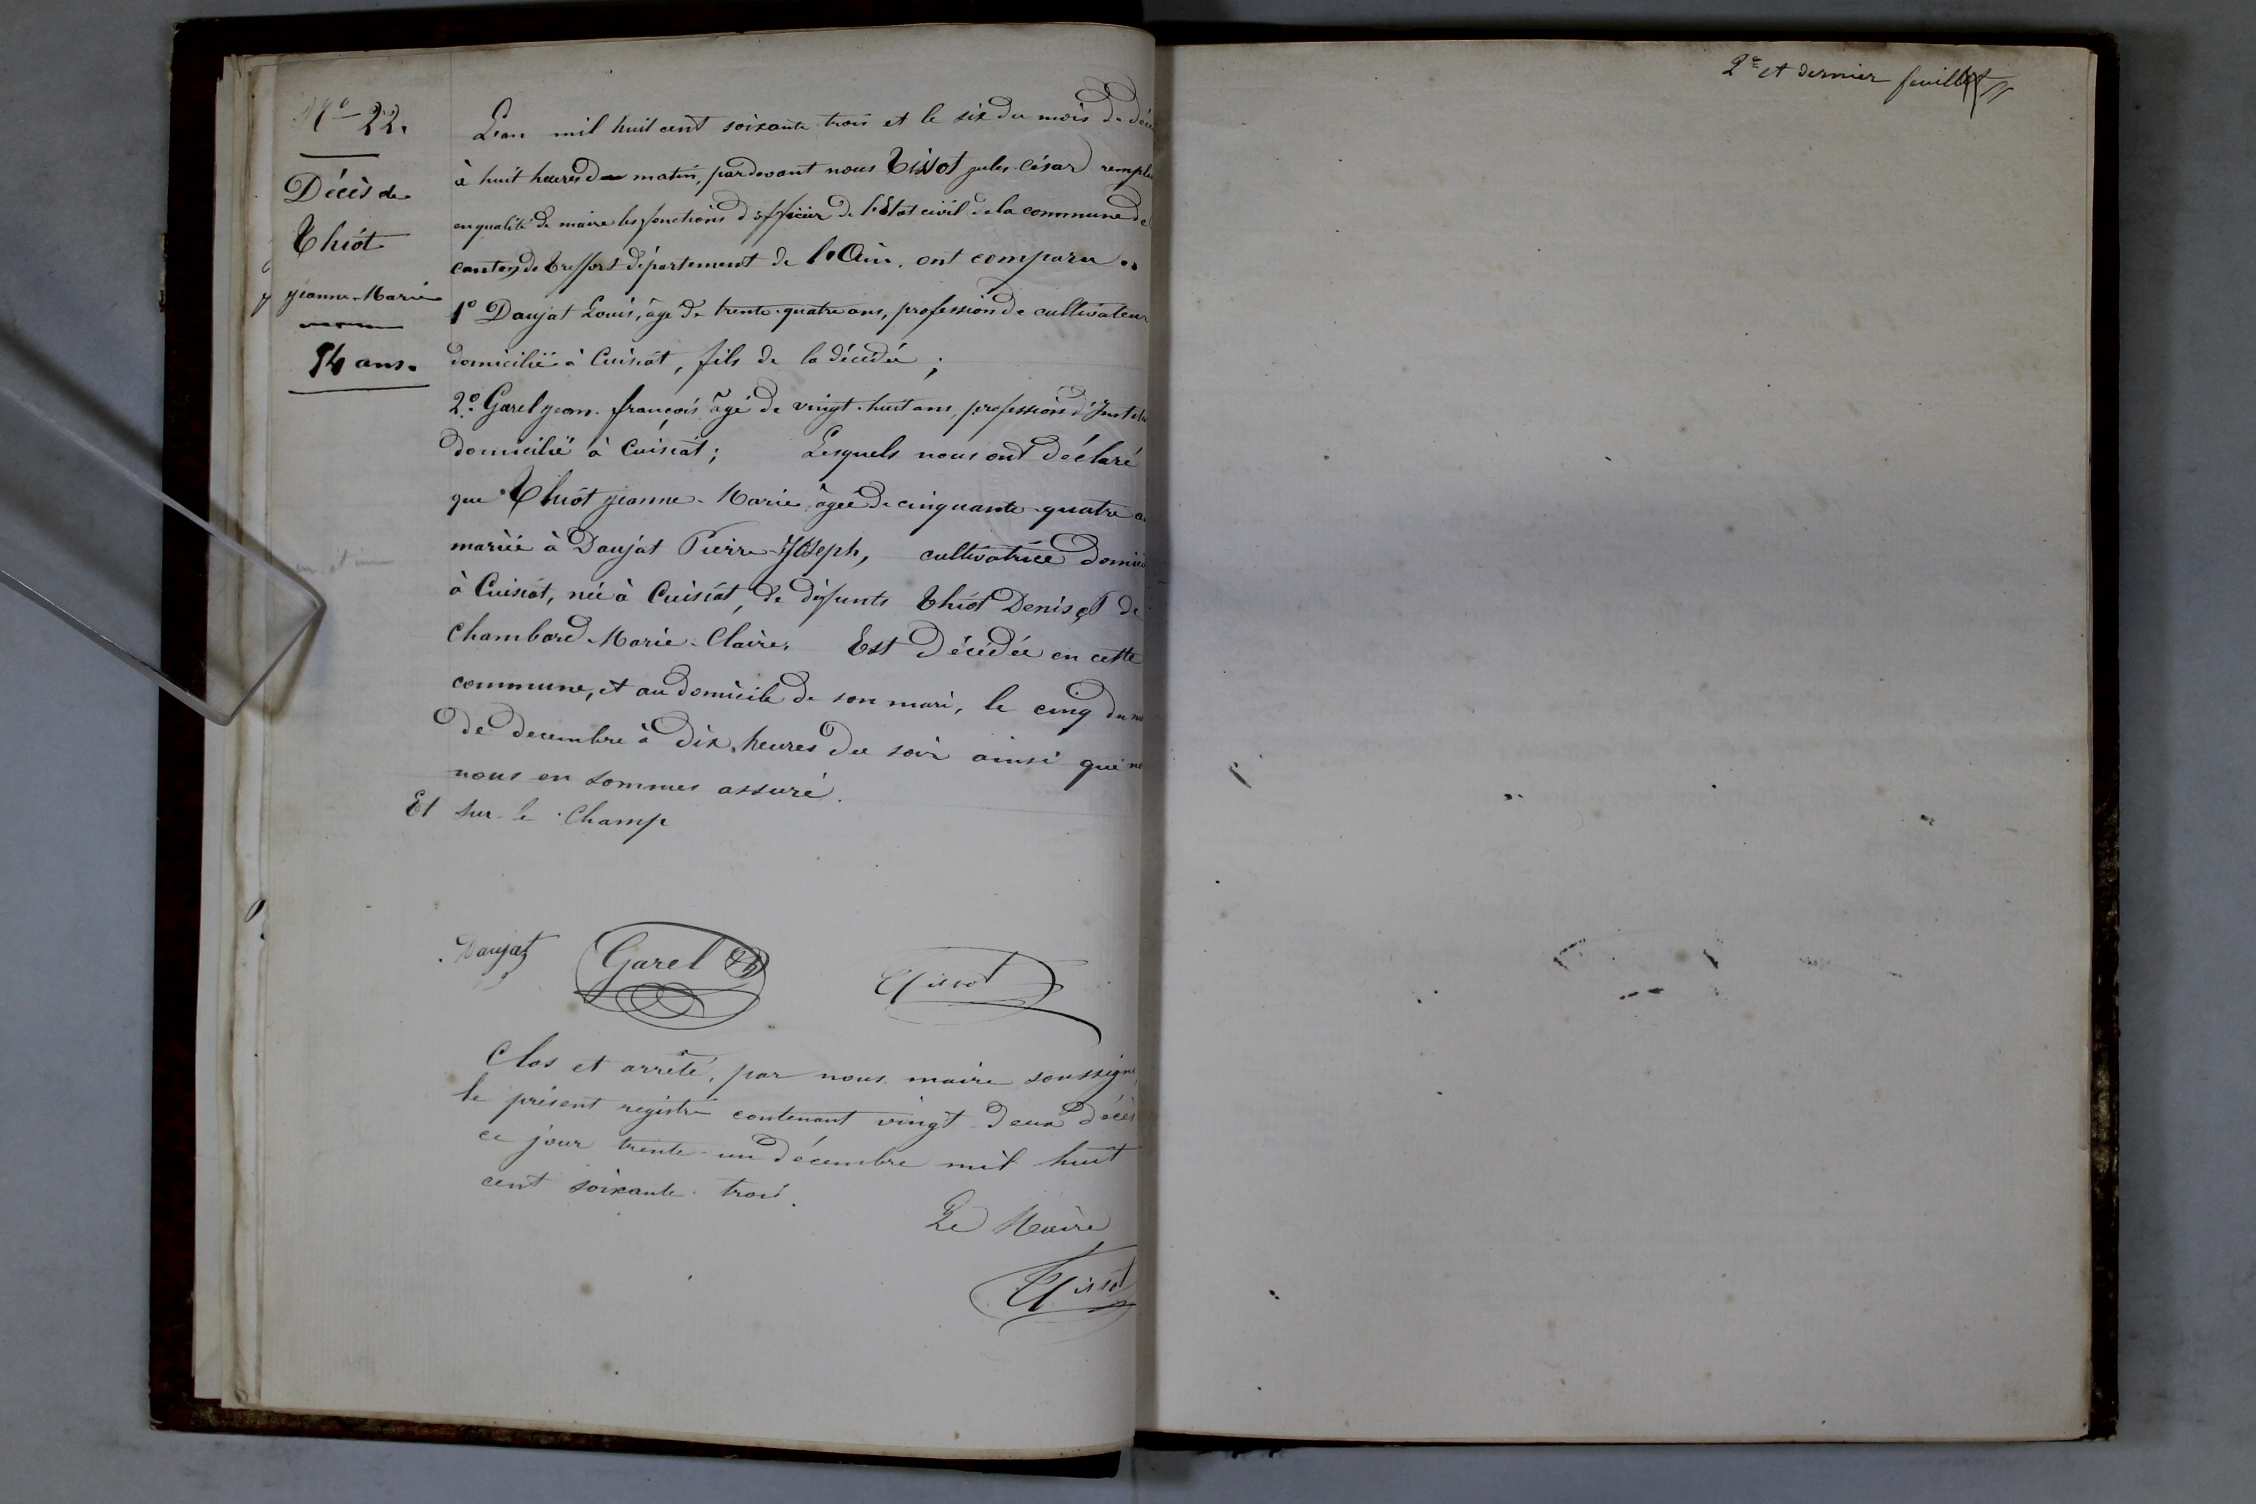 N° 22.
Décès de
Thiot
jeanne-Marie
54 ans.
L'an mil huit cent soixante trois et le six du mois de
à huit heures du matin, pardevant nous Tissot jules-César
en qualité de maire les fonctions d'officier de l'Etat civil de la commune de
canton de treffort département de l'Ain, ont comparu..
1° Daujat Louis, âgé de trente-quatre ans, profession de cultivateur
domicilié à Cuisiat, fils de la décédée ;
2° Garel jean-françois âgé de vingt-huit ans, profession d'
domicilié à Cuisiat ; Lesquels nous ont déclaré
que Thiot jeanne-Marie, âgée de cinquante-quatre
mariée à Daujat Pierre-Joseph, cultivatrice
à Cuisiat, née à Cuisiat, de défunts Thiot Denis et de
Chambard Marie-Claire. Est décédée en cette
commune, et au domicile de son mari, le cinq du
de decembre à dix heures du soir ainsi que
nous en sommes assuré.
Et sur-le-Champ
Daujat Garel Tissot
Clos et arrêté, par nous maire soussigné,
le présent registre contenant vingt-deux décès
ce jour trente-un décembre mil huit
cent soixante-trois.
Le Maire
Tissot
2e et dernier feuillet